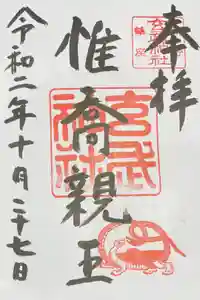 奉拝
玄武神社
惟喬親王
玄武神社
令和二年十月二十七日